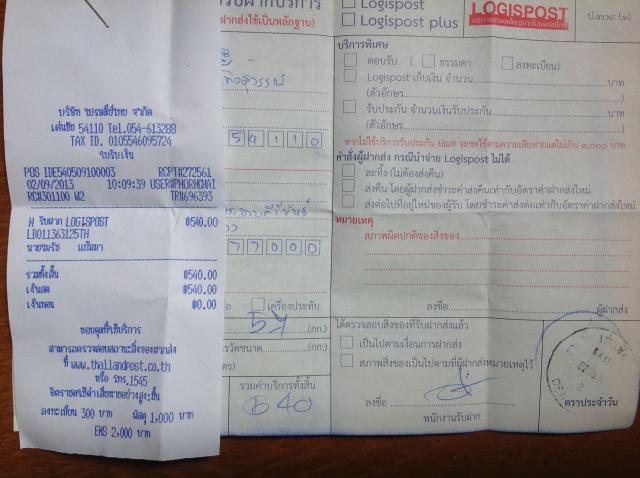 บริษัท ไปรษณีย์ไทย จำกัด
เด่นชัย 54110 Tel.054-613288
TAX ID. 0105546095724
ใบรับเงิน
POS IDE540509100003 RCPT#272561
02/09/2013 10:09:39 USER#PHORNCHAI
RC#301100 W2 TR#696393
N รับฝาก LOGISPOST ฿540.00
LB011363125TH
รวมทั้งสิ้น ฿540.00
เงินสด ฿540.00
เงินทอน ฿0.00
ขอบคุณที่ใช้บริการ
สามารถตรวจสอบสถานะสิ่งของฝากส่ง
ที่ www.thailandpost.co.th
หรือ โทร.1545
อัตราชดใช้ค่าเสียหายอย่างสูง:ชิ้น
ลงทะเบียน 300 บาท พัสดุ 1,000 บาท
EMS 2,000 บาท
รับฝากบริการ
ฝากส่งใช้เป็นหลักฐาน)
54110
77000
เครื่องประทับ
57 (กก.)
(กก.)
รวมค่าบริการทั้งสิ้น
540
Logispost
Logispost plus
LOGISPOST
ป.๓๐๙ (๑)
บริการพิเศษ
ตอบรับ ( ธรรมดา ลงทะเบียน)
Logispost เก็บเงิน จำนวน บาท
(ตัวอักษร )
รับประกัน จำนวนเงินรับประกัน บาท
(ตัวอักษร )
หากไม่ใช้บริการรับประกัน ปณท จะชดใช้ตามความเสียหายแต่ไม่เกิน ๓,๐๐๐ บาท
คำสั่งผู้ฝากส่ง กรณีนำจ่าย Logispost ไม่ได้
ละทิ้ง (ไม่ต้องส่งคืน)
ส่งคืน โดยผู้ฝากส่งชำระค่าส่งคืนเท่ากับอัตราค่าฝากส่งใหม่
ส่งต่อไปที่อยู่ใหม่ของผู้รับ โดยชำระค่าส่งต่อเท่ากับอัตราค่าฝากส่งใหม่
หมายเหตุ
สภาพผิดปกติของสิ่งของ
ลงชื่อ ผู้ฝากส่ง
ได้ตรวจสอบสิ่งของที่รับฝากส่งแล้ว
เป็นไปตามเงื่อนไขการฝากส่ง
สภาพสิ่งของเป็นไปตามที่ผู้ฝากส่งหมายเหตุไว้
ลงชื่อ
พนักงานรับฝาก
ตราประจำวัน